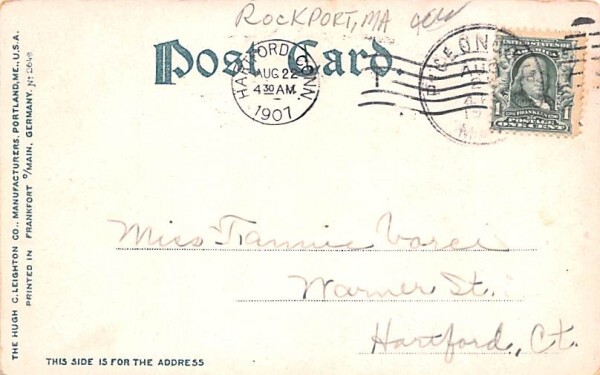 ROCKPORT, MA
Post Card
HARTFORD, CONN.
AUG 22
4 30 AM
1907
PIGEON
AUG
UNITED STATES OF
FRANKLIN
POSTAGE
1 ONE CENT 1
Miss Fannie
Warner St.
Hartford, Ct.
THIS SIDE IS FOR THE ADDRESS
THE HUGH C. LEIGHTON CO., MANUFACTURERS, PORTLAND, ME., U.S.A.
PRINTED IN FRANKFORT O/MAIN, GERMANY.